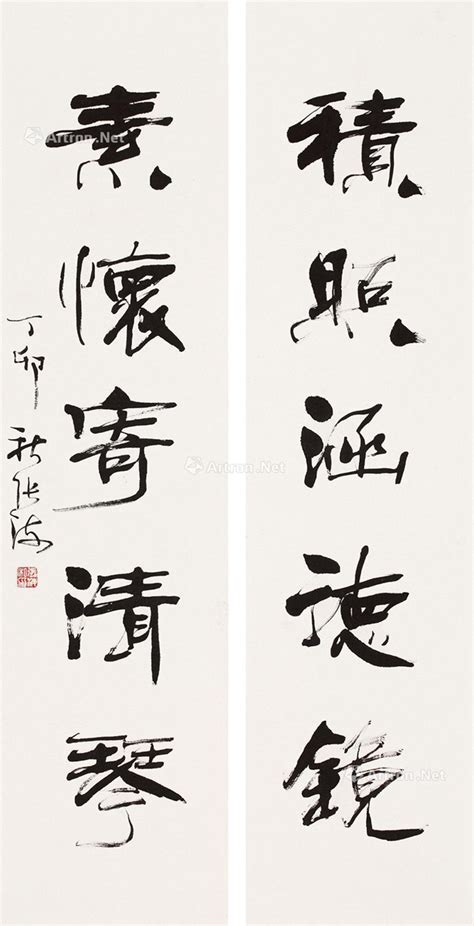 積照涵德鏡
素懷寄清琴
丁卯秋張海
Artron.Net
Artron.Net
Artron.Net
Artron.Net